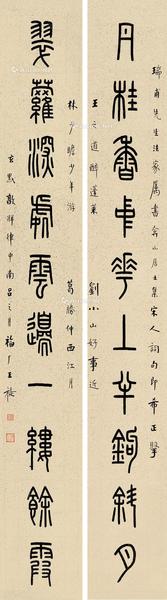 丹桂香中花上半鉤斜月
瑞甫先生法家屬書翕山居士集宋人詞句即希正擘
王之道醉蓬萊
劉小山好事近
翠蘿深處雲邊一縷餘霞
林少瞻少年游
葛勝仲西江月
玄黓敦牂律中南呂之月福厂王禔